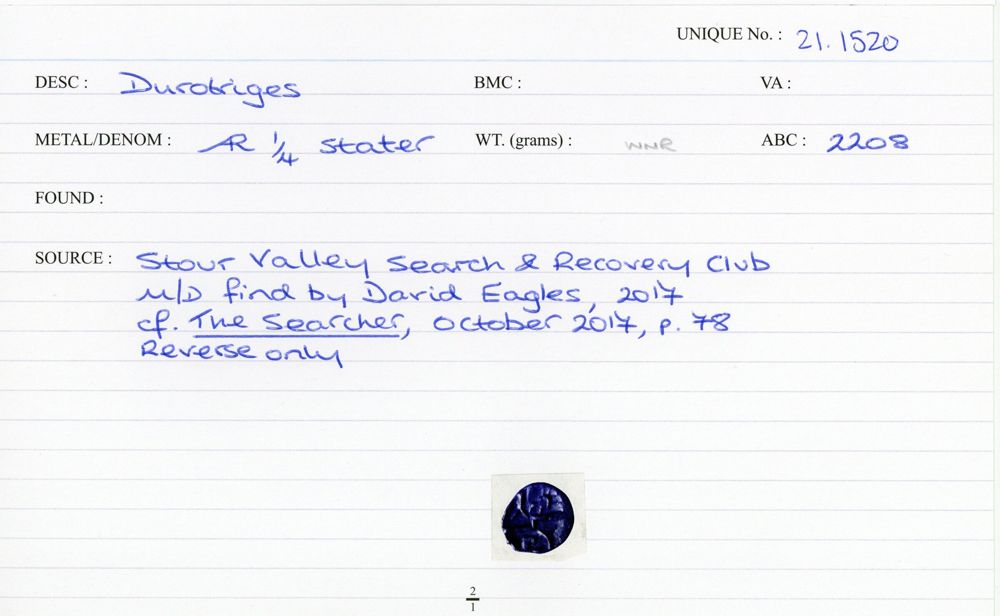 UNIQUE No. : 21.1520
DESC : Durotriges BMC : VA :
METAL/DENOM : AR 1/4 stater WT. (grams) : WNR ABC : 2208
FOUND :
SOURCE : Stour Valley Search & Recovery Club
M/D find by David Eagles, 2017
cf. The Searcher, October 2017, p. 78
Reverse only
2
1